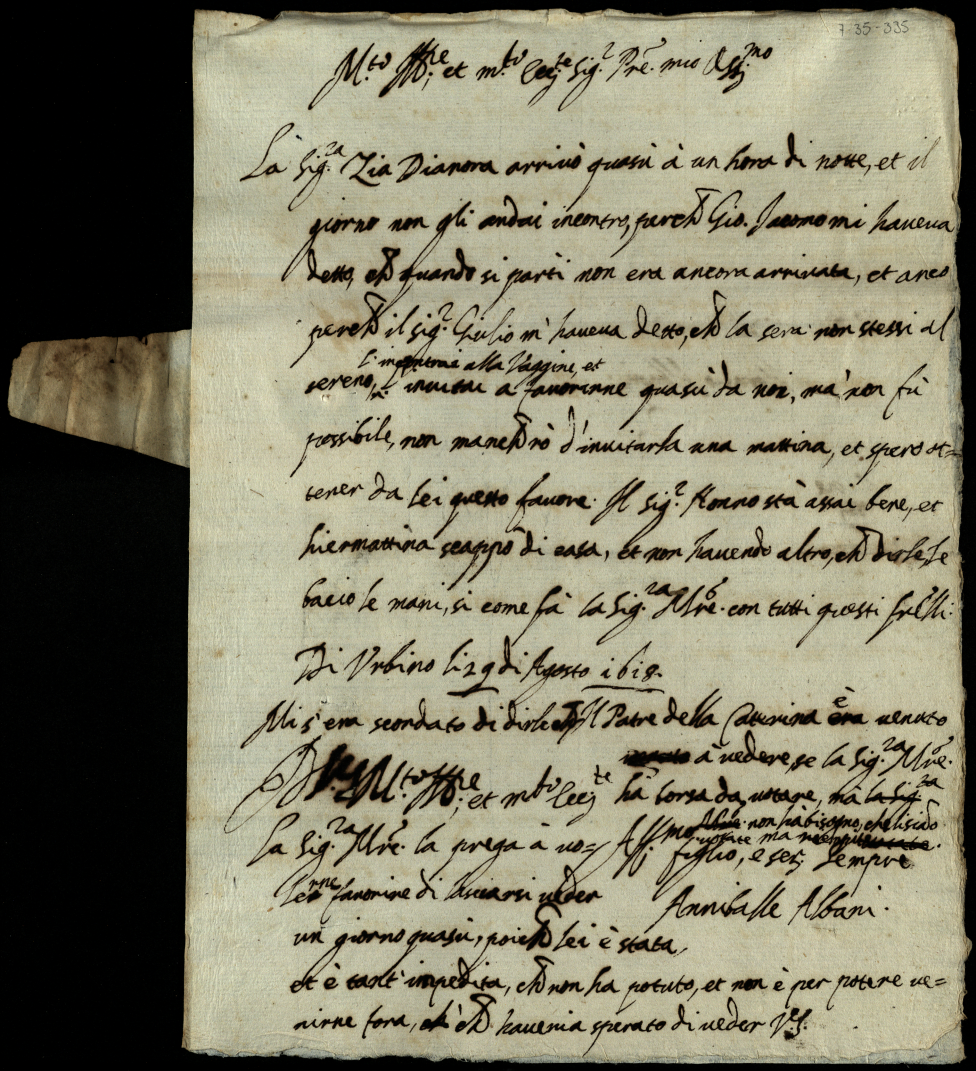 7-35-335
M.to Ill.re et m.to ecc.te Sig.r Pre. mio Oss.mo
La Sig.ra Zia Dianora arrivò quasù à un hora di notte, et il
giorno non gli andai incontro, perchè Gio. Jacomo mi haveva
detto, chè quando si partì non era ancora arrivata, et anco
perchè il sig.r Giulio m'haveva detto, chè la sera non stessi al
l'incontrai alla Vaggine, et
sereno, l'invitai a favorirne quasù da noi, mà non fù
possibile, non mancherò d'invitarla una mattina, et spero ot=
tener da lei questo favore. Il sig.r Nonno stà assai bene, et
hiermattina scappò di casa, et non havendo altro, chè dirle, le
bacio le mani, si come fà la Sig.ra Mre. con tutti questi frelli.
Di Urbino li 29 di Agosto 1618.
Mi s'era scordato di dirle chè il Patre della Catterina è era venuto
à vedere, se la Sig.ra Mre.
D. V.S. M.to Ill.re et m.to ecc.te
hà borsa da votare, mà la Sig.ra
Mre. non hà bisogno, che li siano
votate ma
La Sig.ra Mre. la prega à vo=
Aff.mo figlio, e ser. sempre
lerne favorire di lasciarsi veder
Anniballe Albani.
un giorno quasù, poichè lei è stata,
et è tant'impedita, chè non ha potuto, et non è per potere ve=
nirne fora, chè haveria sperato di veder V.S.